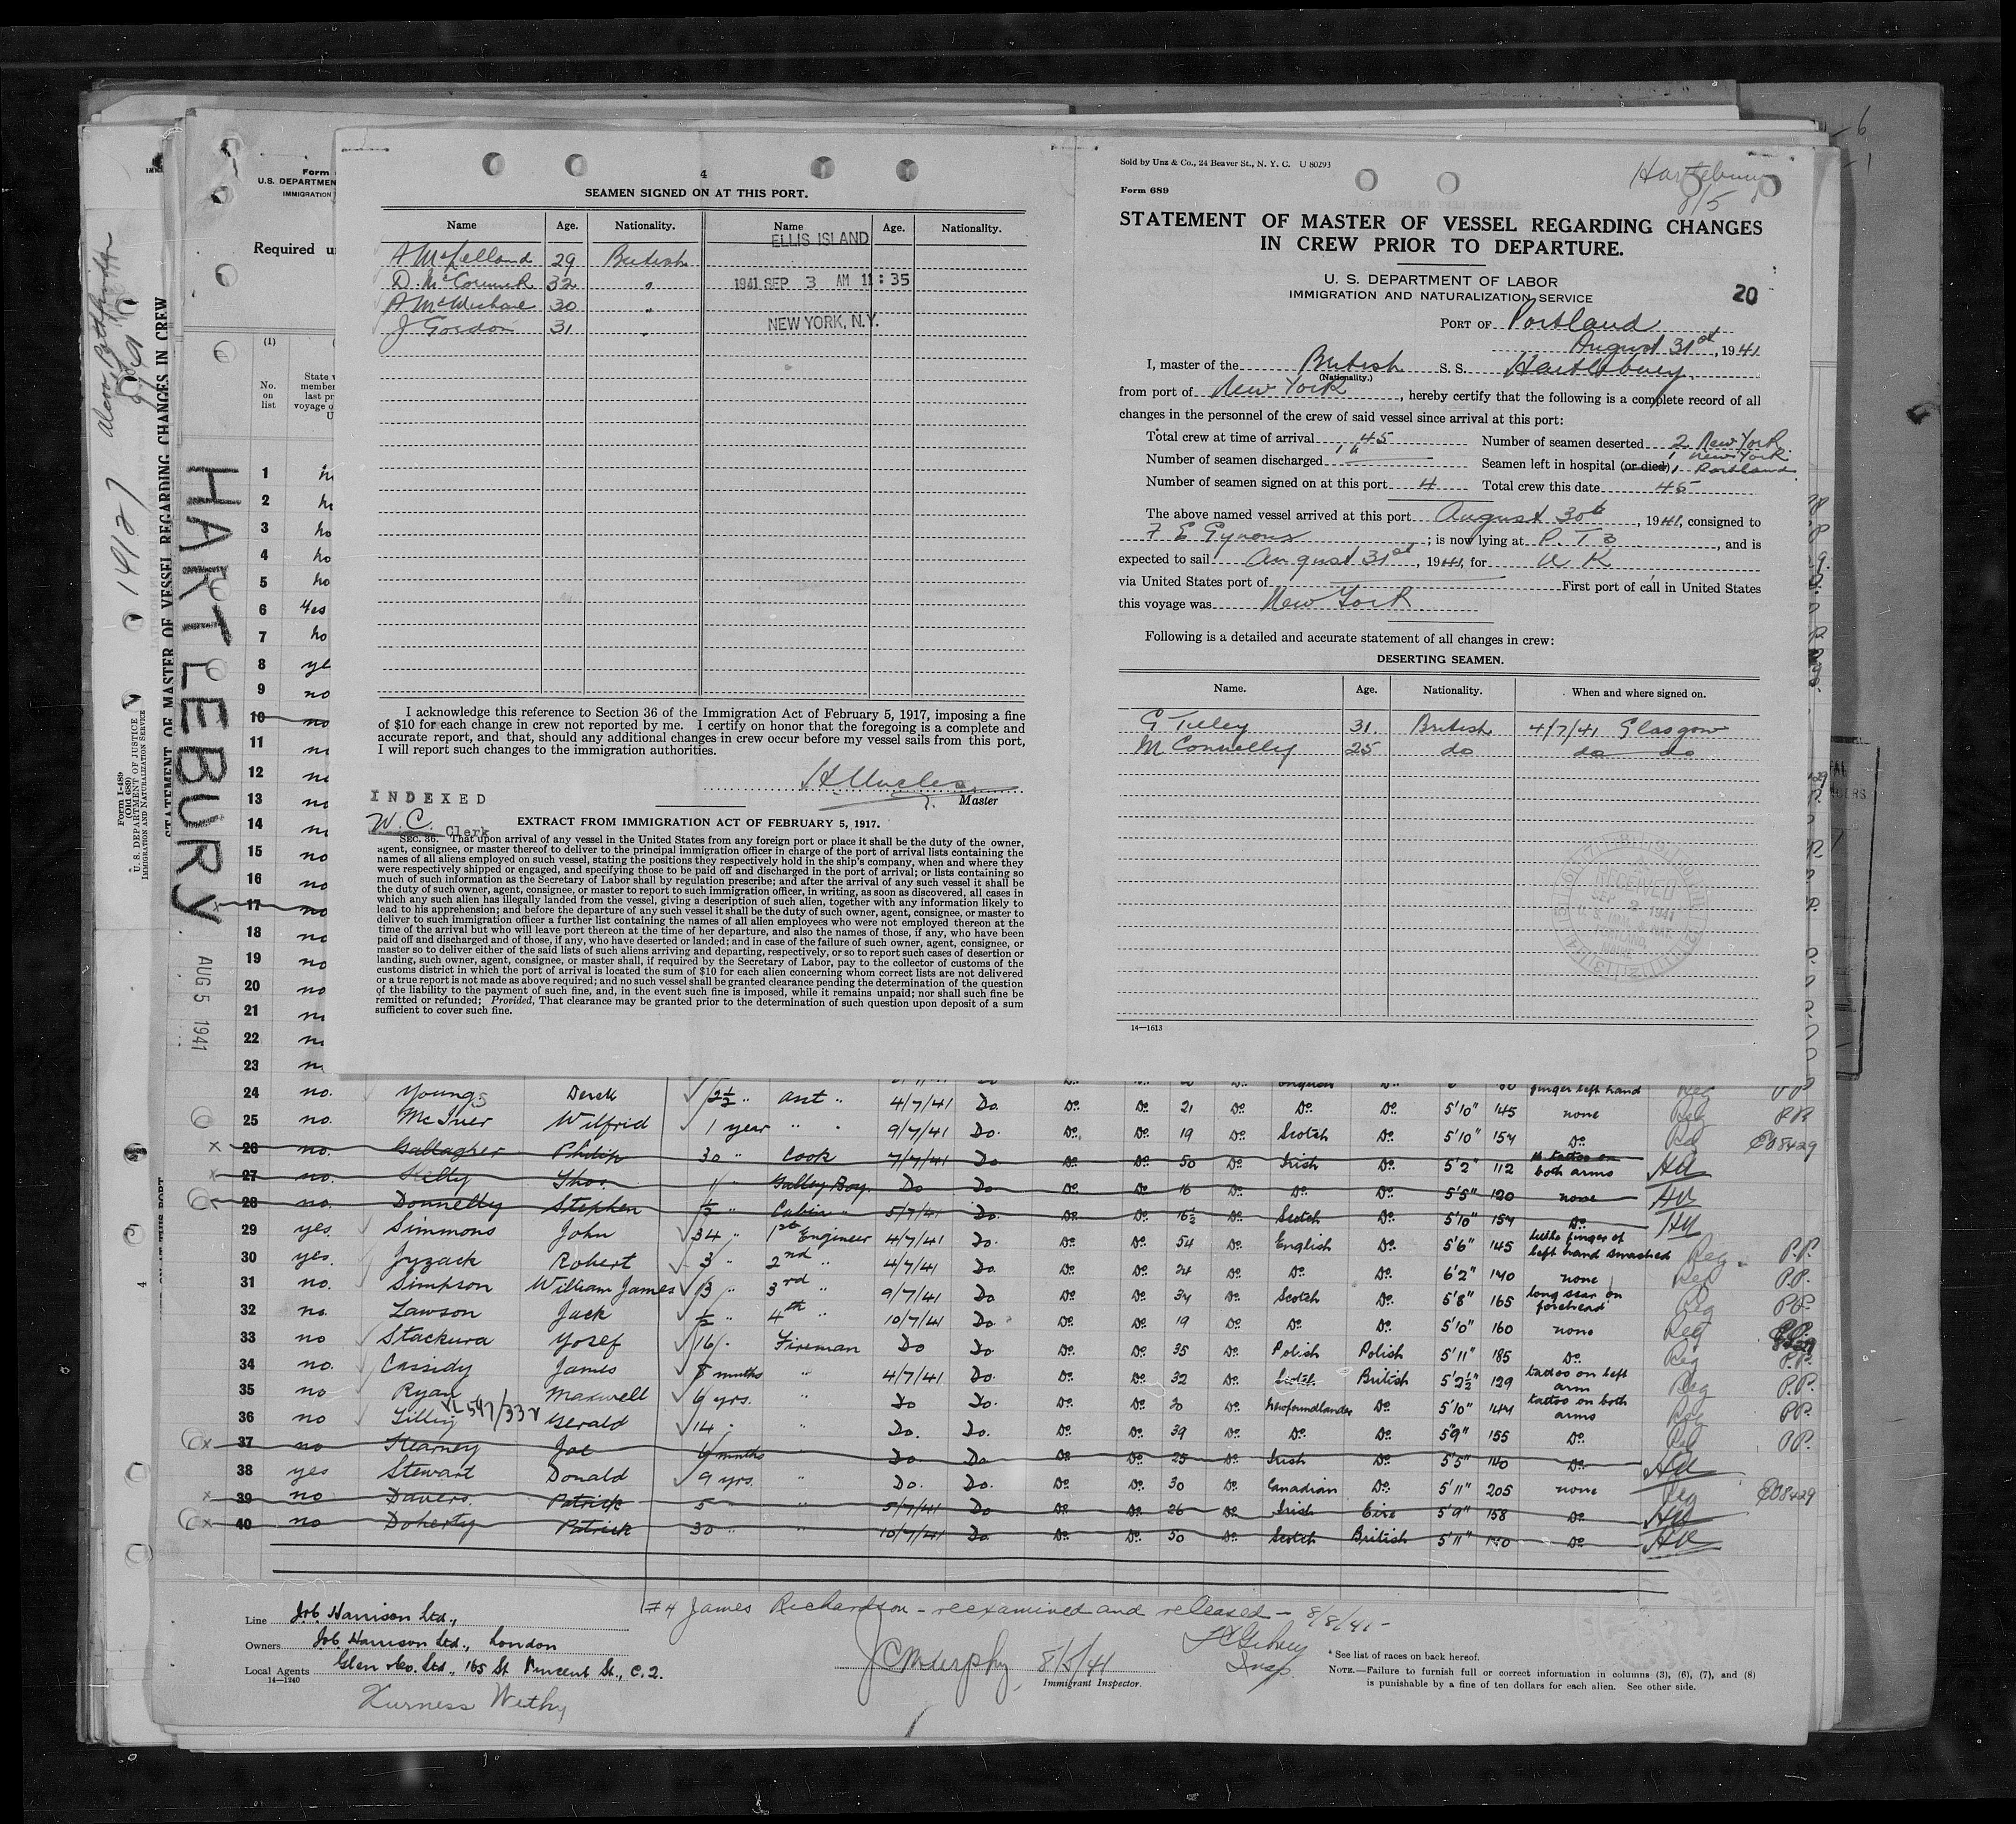 4
SEAMEN SIGNED ON AT THIS PORT.
Name Age. Nationality. Name Age. Nationality.
ELLIS ISLAND
A McLelland 29 British
D. McCormick 32 "
1941 SEP 3 AM 11:35
A McMichael 30 "
J Gordon 31 "
NEW YORK, N.Y.
I acknowledge this reference to Section 36 of the Immigration Act of February 5, 1917, imposing a fine
of $10 for each change in crew not reported by me. I certify on honor that the foregoing is a complete and
accurate report, and that, should any additional changes in crew occur before my vessel sails from this port,
I will report such changes to the immigration authorities.
Master
INDEXED
W. C. Clerk
EXTRACT FROM IMMIGRATION ACT OF FEBRUARY 5, 1917.
SEC. 36. That upon arrival of any vessel in the United States from any foreign port or place it shall be the duty of the owner,
agent, consignee, or master thereof to deliver to the principal immigration officer in charge of the port of arrival lists containing the
names of all aliens employed on such vessel, stating the positions they respectively hold in the ship's company, when and where they
were respectively shipped or engaged, and specifying those to be paid off and discharged in the port of arrival; or lists containing so
much of such information as the Secretary of Labor shall by regulation prescribe; and after the arrival of any such vessel it shall be
the duty of such owner, agent, consignee, or master to report to such immigration officer, in writing, as soon as discovered, all cases in
which any such alien has illegally landed from the vessel, giving a description of such alien, together with any information likely to
lead to his apprehension; and before the departure of any such vessel it shall be the duty of such owner, agent, consignee, or master to
deliver to such immigration officer a further list containing the names of all alien employees who were not employed thereon at the
time of the arrival but who will leave port thereon at the time of her departure, and also the names of those, if any, who have been
paid off and discharged and of those, if any, who have deserted or landed; and in case of the failure of such owner, agent, consignee, or
master so to deliver either of the said lists of such aliens arriving and departing, respectively, or so to report such cases of desertion or
landing, such owner, agent, consignee, or master shall, if required by the Secretary of Labor, pay to the collector of customs of the
customs district in which the port of arrival is located the sum of $10 for each alien concerning whom correct lists are not delivered
or a true report is not made as above required; and no such vessel shall be granted clearance pending the determination of the question
of the liability to the payment of such fine, and, in the event such fine is imposed, while it remains unpaid; nor shall such fine be
remitted or refunded; Provided, That clearance may be granted prior to the determination of such question upon deposit of a sum
sufficient to cover such fine.
Sold by Unz & Co., 24 Beaver St., N. Y. C. U 80293
Hartlebury
8/5
Form 689
STATEMENT OF MASTER OF VESSEL REGARDING CHANGES
IN CREW PRIOR TO DEPARTURE.
U. S. DEPARTMENT OF LABOR
IMMIGRATION AND NATURALIZATION SERVICE
20
PORT OF Portland
August 31st, 1941
I, master of the British S. S. Hartlebury
(Nationality.)
from port of New York, hereby certify that the following is a complete record of all
changes in the personnel of the crew of said vessel since arrival at this port:
Total crew at time of arrival 45 Number of seamen deserted 2 New York
Number of seamen discharged Seamen left in hospital (or died) 1 New York 1 Portland
Number of seamen signed on at this port 4 Total crew this date 45
The above named vessel arrived at this port August 30th, 1941, consigned to
; is now lying at P. T 3, and is
expected to sail August 31st, 1941, for U K
via United States port of First port of call in United States
this voyage was New York
Following is a detailed and accurate statement of all changes in crew:
DESERTING SEAMEN.
Name. Age. Nationality. When and where signed on.
G Tilley 31. British 4/7/41 Glasgow
M Connolly 25 do do do
RECEIVED
SEP 2 1941
PORTLAND,
MAINE
14—1613
Form
U.S. DEPARTMENT
IMMIGRATION
Required
(1)
No. on list
HARTLEBURY
AUG 5 1941
STATEMENT OF MASTER OF VESSEL REGARDING CHANGES IN CREW
Form I-489
(Old 689)
U. S. DEPARTMENT OF JUSTICE
IMMIGRATION AND NATURALIZATION SERVICE
14127
1
2
3 no
4 no
5 no
6 Yes
7 no
8 ye
9 no
10 no
11
12
13
14
15 no
16 no
17 no
18 no
19 no
20 no
21
22
23
finger left hand
24 no. Youngs Derek 2½ " asst " 4/7/41 Do. Do. Do. 21 Do. Do. Do. 5'10" 145 none
25 no. McIver Wilfrid 1 year " " 9/7/41 Do. Do. Do. 19 Do. Scotch Do. 5'10" 154 Do.
26 no. Gallagher Philip 30 " Cook 7/7/41 Do Do. Do. 50 Do. Irish Do. 5'2" 112 tattoo on both arms
27 no. Kelly Thos. 1 " Galley Boy Do Do. Do. Do. 16 Do. Do. Do. 5'5" 120 none
28 no. Donnelly Stephen ½ " Cabin " 5/7/41 Do. Do. Do. 16½ Do. Scotch Do. 5'10" 154 Do.
29 yes. Simmons John 34 " 1st Engineer 4/7/41 Do. Do. Do. 54 Do. English Do. 5'6" 145 little finger of left hand smashed Reg. P.P.
30 yes. Jyzack Robert 3 " 2nd " 4/7/41 Do. Do. Do. 24 Do. Do. Do. 6'2" 140 none Reg P.P.
31 no. Simpson William James 13 " 3rd " 9/7/41 Do Do. Do. 34 Do. Scotch Do. 5'8" 165 long scar on forehead Reg P.P.
32 no. Lawson Jack ½ " 4th " 10/7/41 Do. Do. Do. 19 Do. Do. Do. 5'10" 160 none Reg
33 no Stachura Yosef 16 " Fireman Do Do Do. Do. 35 Do. Polish Polish 5'11" 185 Do. Reg P.P.
34 no. Cassidy James 8 months " 4/7/41 Do. Do. Do. 32 Do. Scotch British 5'2½" 129 tattoo on left arm Reg P.P.
35 no Ryan Maxwell 6 yrs. " Do Do. Do. Do. 20 Do. Newfoundlander Do. 5'10" 144 tattoo on both arms Reg P.P.
36 no Tilley Gerald 14 " " Do. Do. Do. Do. 39 Do. Do. Do. 5'9" 155 Do. Reg P.P.
37 no Kearney Joe 6 months " Do Do Do. Do. 25 Do. Irish Do. 5'5" 140 Do.
38 yes Stewart Donald 9 yrs. " Do. Do. Do. Do. 30 Do. Canadian Do. 5'11" 205 none Reg
39 no Davers Patrick 5 " " 5/7/41 Do Do. Do. 26 Do. Irish Eire 5'9" 158 Do.
40 no Doherty Patrick 30 " " 10/7/41 Do. Do. Do. 50 Do. Scotch British 5'11" 140 Do.
#4 James Richardson - reexamined and released - 8/8/41 -
Line J. & C. Harrison Ltd.,
Owners J. & C. Harrison Ltd., London
Local Agents Glen & Co. Ltd., 165 St Vincent St., C.2.
14—1240
Furness Withy
J C Murphy 8/5/41
Immigrant Inspector.
Insp.
* See list of races on back hereof.
NOTE.—Failure to furnish full or correct information in columns (3), (6), (7), and (8)
is punishable by a fine of ten dollars for each alien. See other side.